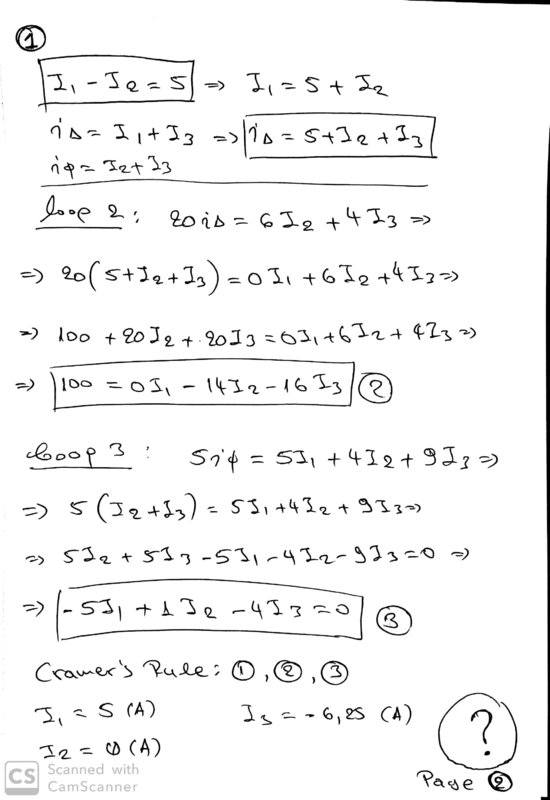 ①
I₁ - I₂ = 5 => I₁ = 5 + I₂
iΔ = I₁ + I₃ => iΔ = 5 + I₂ + I₃
iφ = I₂ + I₃
loop 2 : 20 iΔ = 6 I₂ + 4 I₃ =>
=> 20 (5 + I₂ + I₃) = 0 I₁ + 6 I₂ + 4 I₃ =>
=> 100 + 20 I₂ + 20 I₃ = 0 I₁ + 6 I₂ + 4 I₃ =>
=> 100 = 0 I₁ - 14 I₂ - 16 I₃ ②
loop 3 : 5 iφ = 5 I₁ + 4 I₂ + 9 I₃ =>
=> 5 (I₂ + I₃) = 5 I₁ + 4 I₂ + 9 I₃ =>
=> 5 I₂ + 5 I₃ - 5 I₁ - 4 I₂ - 9 I₃ = 0 =>
=> - 5 I₁ + 1 I₂ - 4 I₃ = 0 ③
Cramer's Rule : ①, ②, ③
I₁ = 5 (A) I₃ = - 6,25 (A)
I₂ = 0 (A)
?
Page ②
CS Scanned with
CamScanner